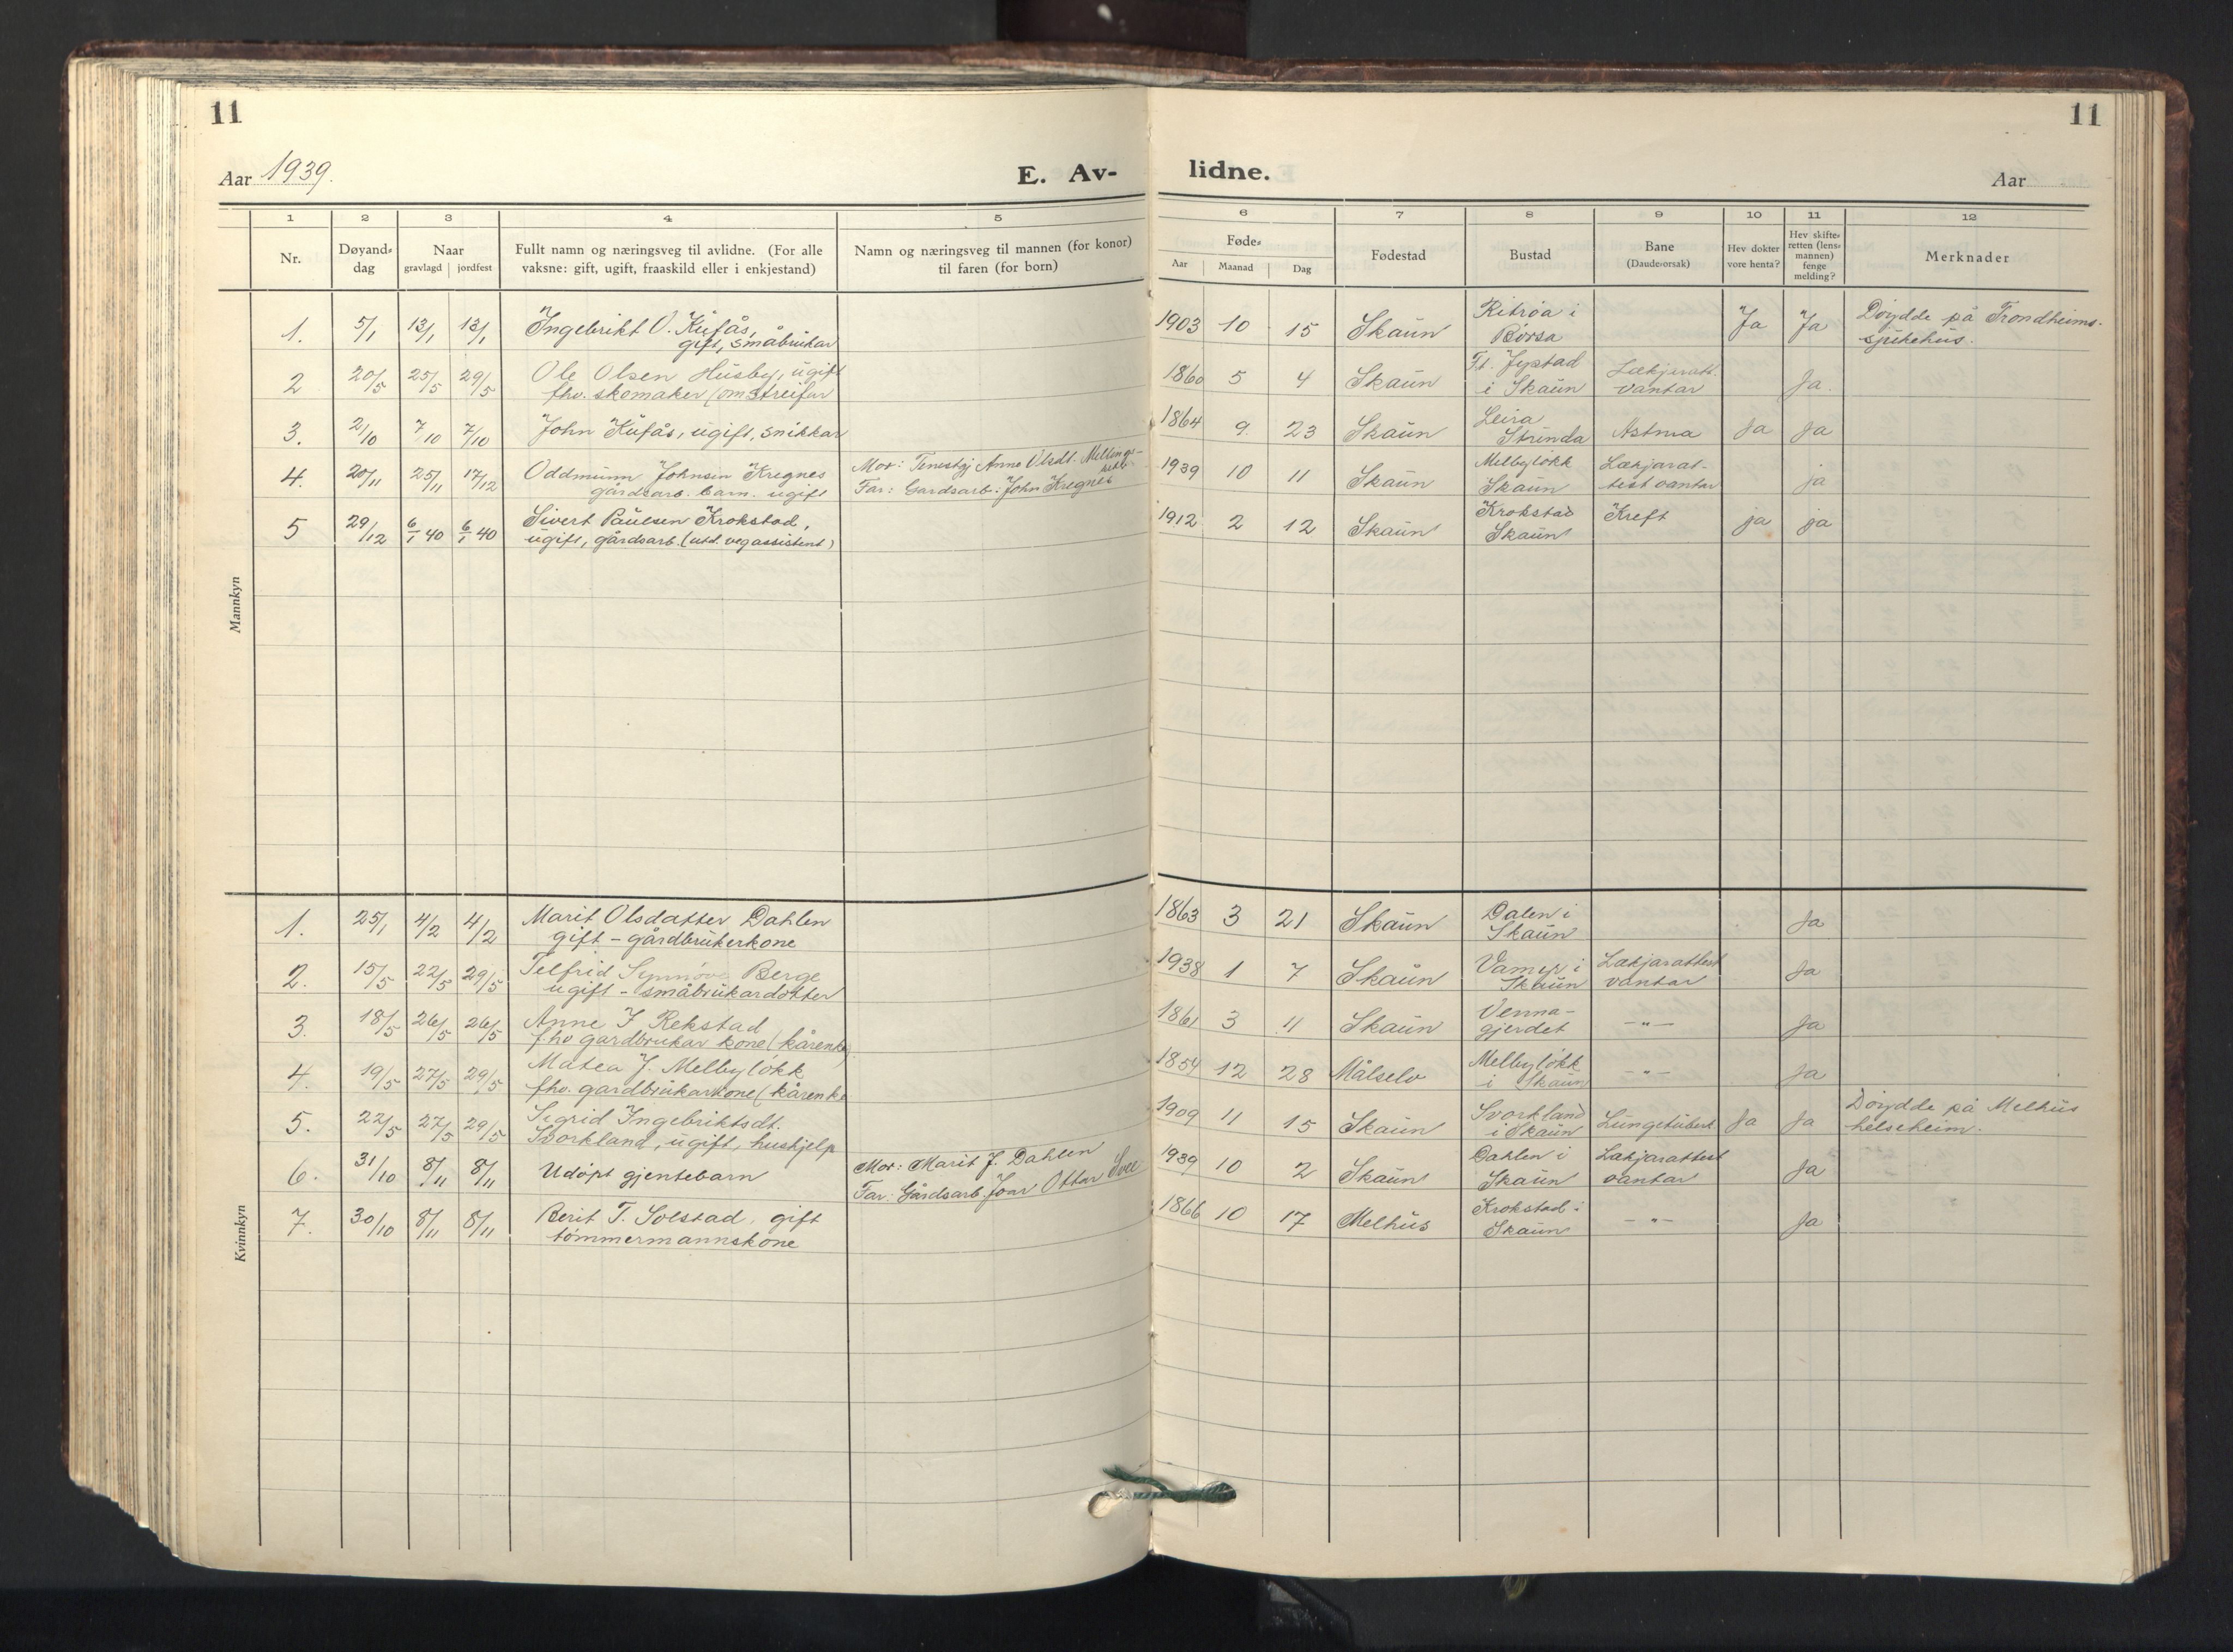 11
11
Aar 1939.
E. Av-
lidne.
Aar
1 2 3 4 5 6 7 8 9 10 11 12
Nr.
Døyand-
dag
Naar
gravlagd | jordfest
Fullt namn og næringsveg til avlidne. (For alle
vaksne: gift, ugift, fraaskild eller i enkjestand)
Namn og næringsveg til mannen (for konor)
til faren (for born)
Føde-
Aar Maanad Dag
Fødestad
Bustad
Bane
(Daudeorsak)
Hev dokter
vore henta?
Hev skifte-
retten (lens-
mannen)
fenge
melding?
Merknader
Mannkyn
1. 5/1 13/1 13/1 Ingebrikt O. Kufås,
gift, småbrukar
1903 10 15 Skaun
Ritrøa i
Børsa
Ja Ja
Døydde på Trondheims-
sjukehus.
2 20/5 25/5 29/5 Ole Olsen Husby, ugift
fhv. skomaker (omstreifar
1860 5 4 Skaun
i Skaun
Lækjaratt.
vantar
Ja.
3. 2/10 7/10 7/10 John Kufås, ugift, snikkar
1864 9 23 Skaun
Leira
Strinda
Astma Ja Ja
4. 20/11 25/11 17/12 Oddmunn Johnsen Kregnes
gårdsarb. barn. ugift
Mor: Tenestgj Anne Olsdt. Mellings-
Far: Gardsarb: John Kregnes
1939 10 11 Skaun
Melbyløkk
Skaun
Lækjarat-
test vantar
ja
5 29/12 6/1 40 6/1 40 Sivert Paulsen Krokstad,
ugift, gårdsarb. (utd. vegassistent)
1912 2 12 Skaun
Krokstad
Skaun
Kreft ja ja
Kvinnkyn
1. 25/1 4/2 4/2 Marit Olsdatter Dahlen
gift - gårdbrukerkone
1863 3 21 Skaun
Dalen i
Skaun
Ja
2. 15/5 22/5 29/5 Telfrid Synnøve Berge
ugift - småbrukardotter
1938 1 7 Skaun
i
Skaun
Lækjarattest
vantar
Ja
3. 18/5 26/5 26/5 Anne J Rekstad
fhv gardbrukar kone (kårenke)
1861 3 11 Skaun
Venna-
gjerdet
-"-
Ja
4. 19/5 27/5 29/5 Matea J. Melbyløkk
fhv. gardbrukarkone (kårenke
1854 12 28 Målselv
Melbyløkk
i Skaun
-"-
Ja
5. 22/5 27/5 29/5 Sigrid Ingebriktsdt.
Svorkland, ugift, hushjelp
1909 11 15 Skaun
Svorkland
i Skaun
Lungetuberk Ja Ja
Døydde på Melhus
helseheim.
6. 31/10 8/11 8/11 Udøpt gjentebarn
Mor: Marit J. Dahlen
Far: Gårdsarb. Joar Ottar Svee
1939 10 2 Skaun
Dahlen i
Skaun
Lækjarattest
vantar
Ja
7. 30/10 8/11 8/11 Berit T. Solstad, gift
tømmermannskone
1866 10 17 Melhus
Krokstad i
Skaun
-"-
Ja